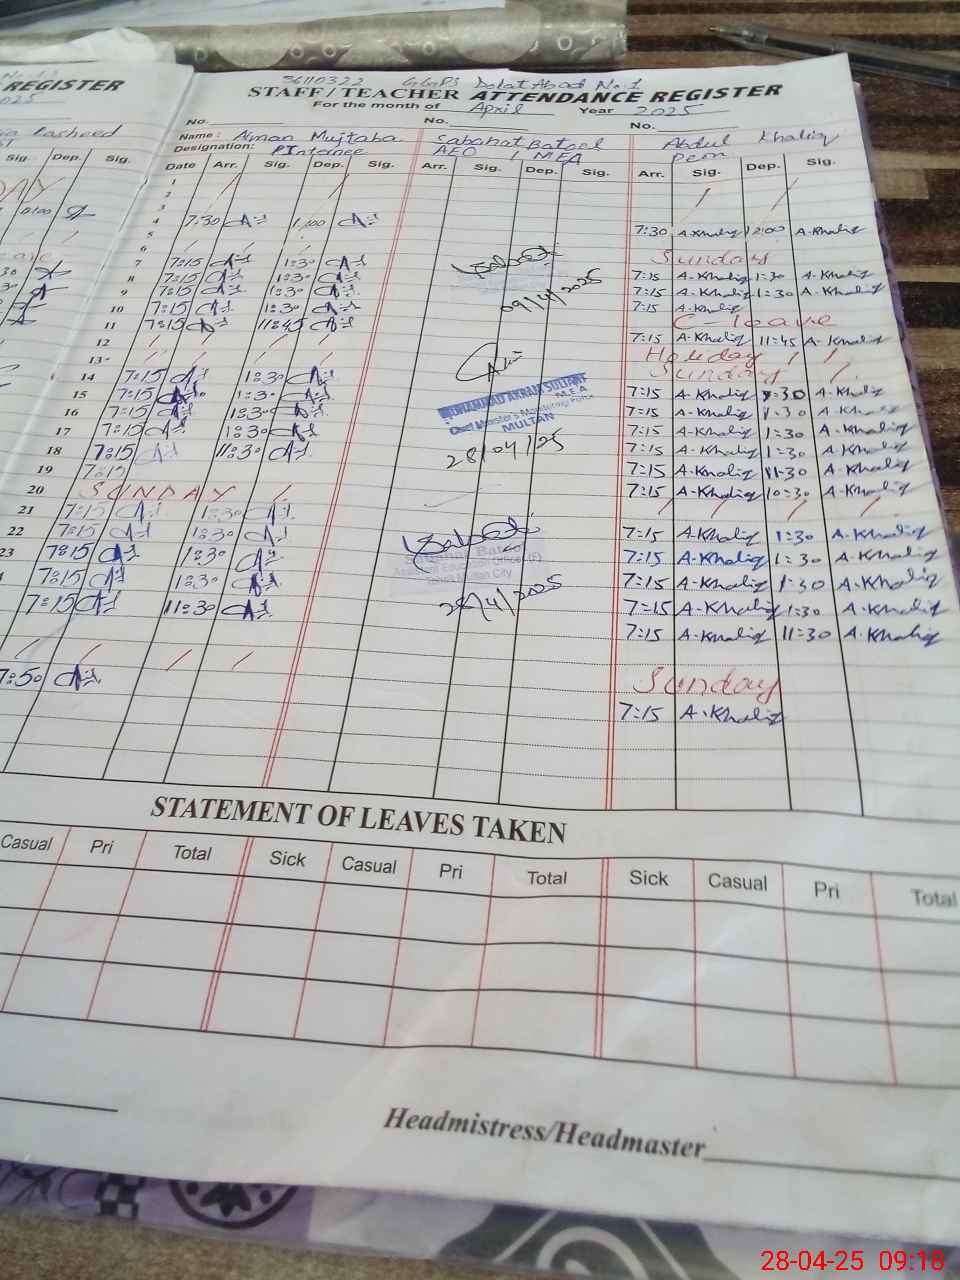 REGISTER
36110322 GGPS Dolat Abad No.1
STAFF/TEACHER ATTENDANCE REGISTER
For the month of April Year 2025
No. No. No.
Rasheed
Name: Aiman Mujtaba Sabahat Batool Abdul Khaliq
Designation: PTInternee AEO / MEA Peon
Sig. Dep. Sig. Date Arr. Sig. Dep. Sig. Arr. Sig. Dep. Sig. Arr. Sig. Dep. Sig.
1
2
3
4 7:30 1:00 7:30 A.Khaliq 12:00 A.Khaliq
5
6 Sunday
7 7:15 1:30 7:15 A.Khaliq 1:30 A.Khaliq
8 7:15 1:30 7:15 A.Khaliq 1:30 A.Khaliq
9 7:15 1:30 09/4/2025 7:15 A.Khaliq
10 7:15 1:30 C-leave
11 7:15 11:45 7:15 A.Khaliq 11:45 A.Khaliq
12 Holiday
13 Sunday
14 7:15 1:30 7:15 A.Khaliq 1:30 A.Khaliq
15 7:15 1:30 7:15 A.Khaliq 1:30 A.Khaliq
MUHAMMAD AKRAM SULTANI
M.E.A
Chief Minister's Monitoring Force
MULTAN
16 7:15 1:30 7:15 A.Khaliq 1:30 A.Khaliq
17 7:15 1:30 28/04/25 7:15 A.Khaliq 1:30 A.Khaliq
18 7:15 11:30 7:15 A.Khaliq 11:30 A.Khaliq
19 7:15 7:15 A.Khaliq 10:30 A.Khaliq
20 SUNDAY
21 7:15 1:30 7:15 A.Khaliq 1:30 A.Khaliq
22 7:15 1:30 7:15 A.Khaliq 1:30 A.Khaliq
Sabahat Batool
Assistant Education Officer (F)
Tehsil Multan City
23 7:15 1:30 7:15 A.Khaliq 1:30 A.Khaliq
7:15 1:30 28/4/2025 7:15 A.Khaliq 1:30 A.Khaliq
7:15 11:30 7:15 A.Khaliq 11:30 A.Khaliq
Sunday
7:50 7:15 A.Khaliq
STATEMENT OF LEAVES TAKEN
Casual Pri Total Sick Casual Pri Total Sick Casual Pri Total
Headmistress/Headmaster
28-04-25 09:18